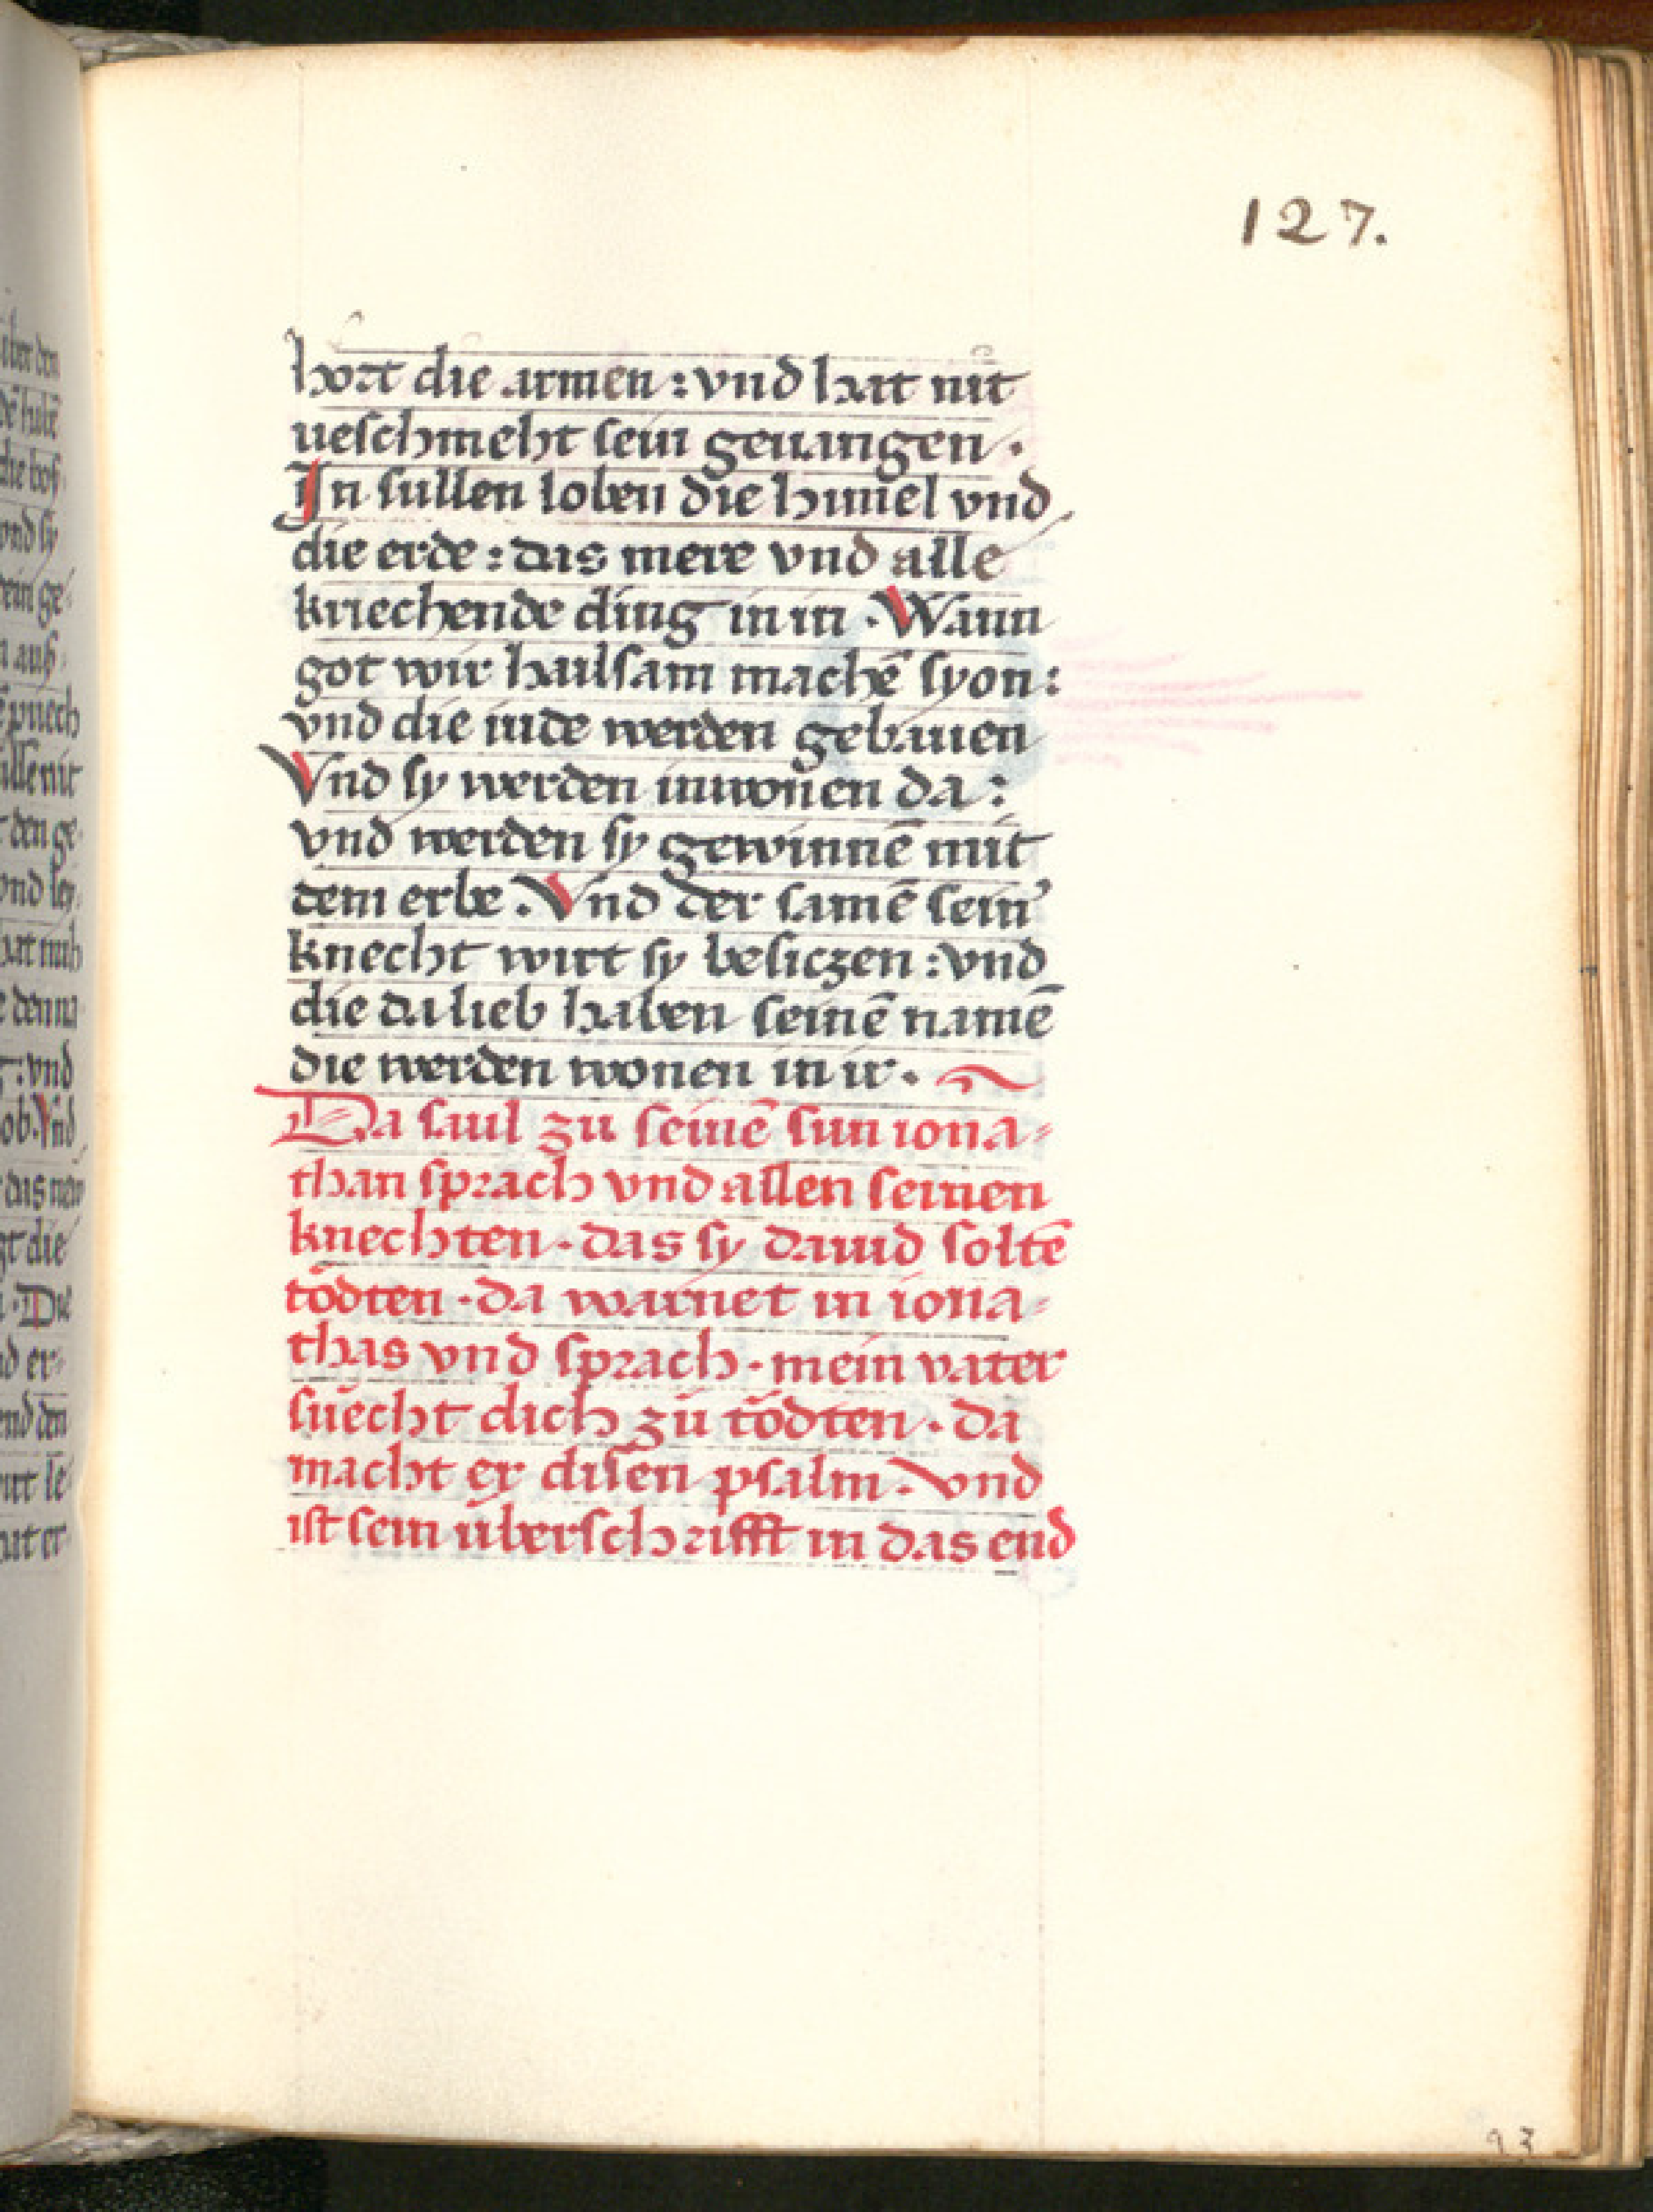 127.
hort die armen : vnd hat nit
ueschmeht sein geuangen .
In sullen loben die himel vnd
die erde : das mere vnd alle
kriechende ding in in . Wann
got wir hailsam machē syon :
vnd die iude werden gebauen
Vnd sy werden inwonen da :
vnd werden sy gewinnē mit
dem erbe . Vnd der samē sein
knecht wirt sy besiczen : vnd
die da lieb haben seinē namē
die werden wonen in ir .
Da saul zu seinē sun iona-
than sprach vnd allen seinen
knechten . das sy dauid soltē
tödten . da warnet in iona-
thas vnd sprach . mein vater
suecht dich zu tödten . da
macht er disen psalm . vnd
ist sein überschrifft in das end
93